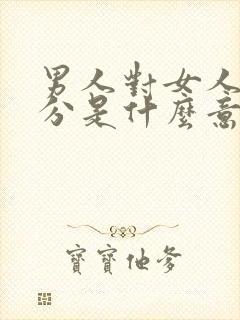 男人對女人
分是什麼意
寶寶他爹